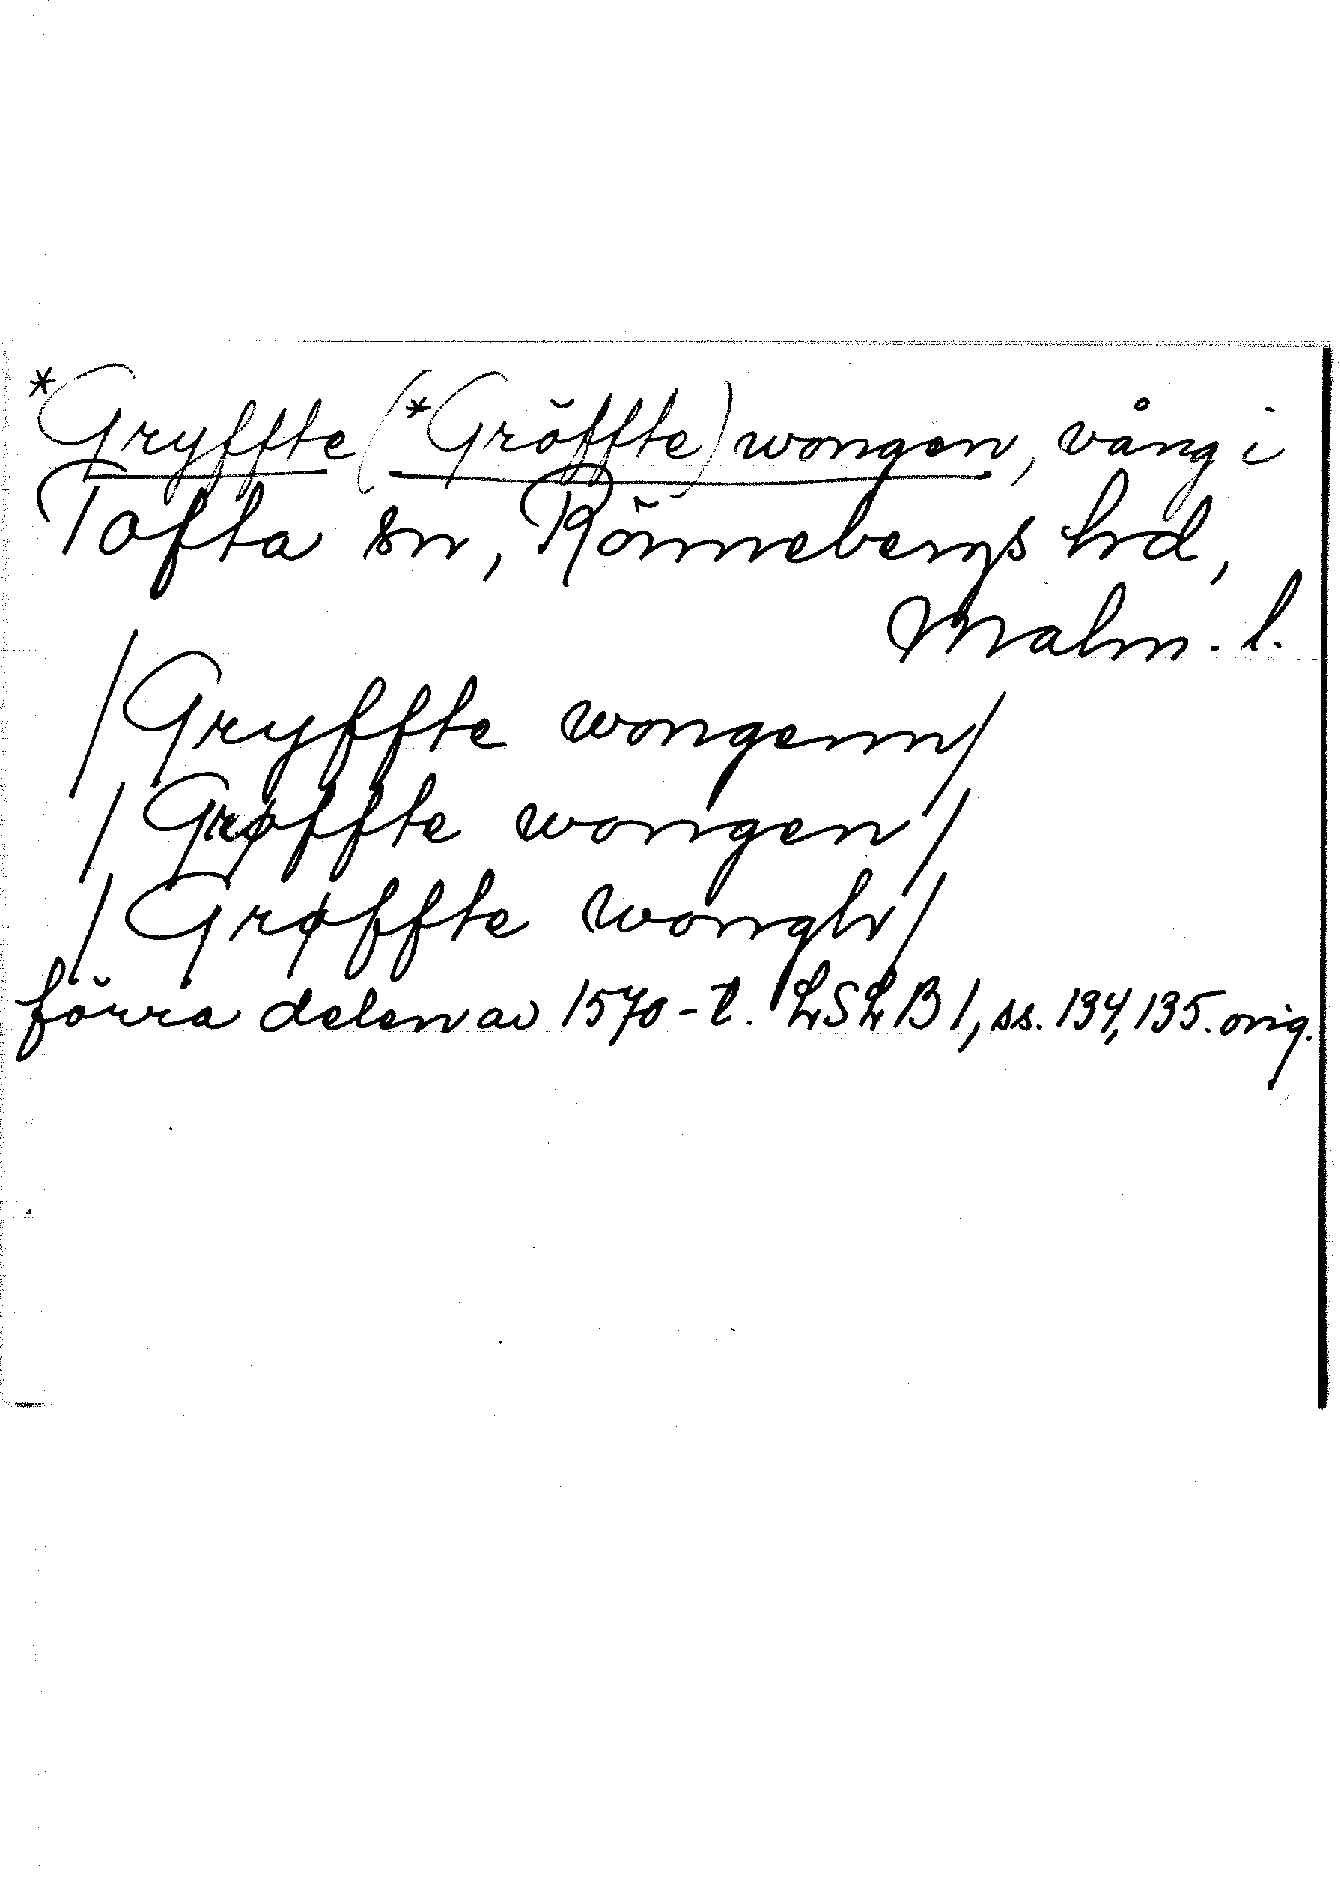 *Gryffte (*Gröffte) wongen, vång i
Tofta sn, Rönnebergs hrd,
Malm. l.
/Gryffte wongenn/
/Grøffte wongen/
/Grøffte wongh/
förra delen av 1570-t. LSLB1, ss. 134, 135. orig.